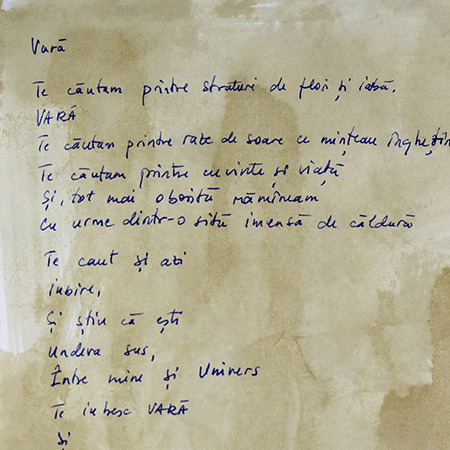 Vară
Te căutam printre straturi de flori și iarbă.
VARĂ
Te căutam printre raze de soare ce mințeau
Te căutam printre cuvinte și viață
Și, tot mai obosită rămîneam
Cu urme dintr-o sită imensă de căldură
Te caut și azi
iubire,
Și știu că ești
Undeva sus,
Între mine și Univers
Te iubesc VARĂ
și